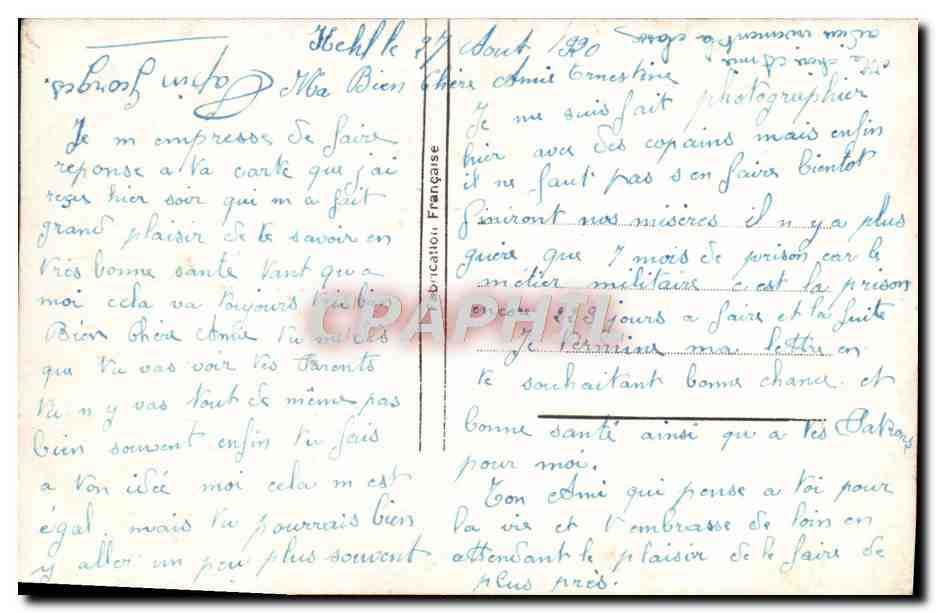 Kehl le 27 Aout 1920
Ma Bien Chère Amie Ernestine
Je m empresse de faire
reponse a ta carte que j'ai
reçue hier soir qui m a fait
grand plaisir de te savoir en
très bonne santé tant qu a
moi cela va toujours très bien
Bien Chère Amie tu me dis
que tu vas voir tes Parents
tu n y vas tout de même pas
bien souvent enfin tu fais
a ton idée moi cela m est
égal, mais tu pourrais bien
y aller un peu plus souvent
Je me suis fait photographier
hier avec des copains mais enfin
il ne faut pas s en faire bientot
finiront nos misères il n y a plus
guère que 7 mois de prison car le
métier militaire c est la prison
encore 229 jours a faire et la fuite
Je termine ma lettre en
te souhaitant bonne chance et
bonne santé ainsi qu a tes Patrons
pour moi.
Ton Ami qui pense a toi pour
la vie et t embrasse de loin en
attendant le plaisir de le faire de
plus près.
Georges
Fabrication Française
CPAPHIL